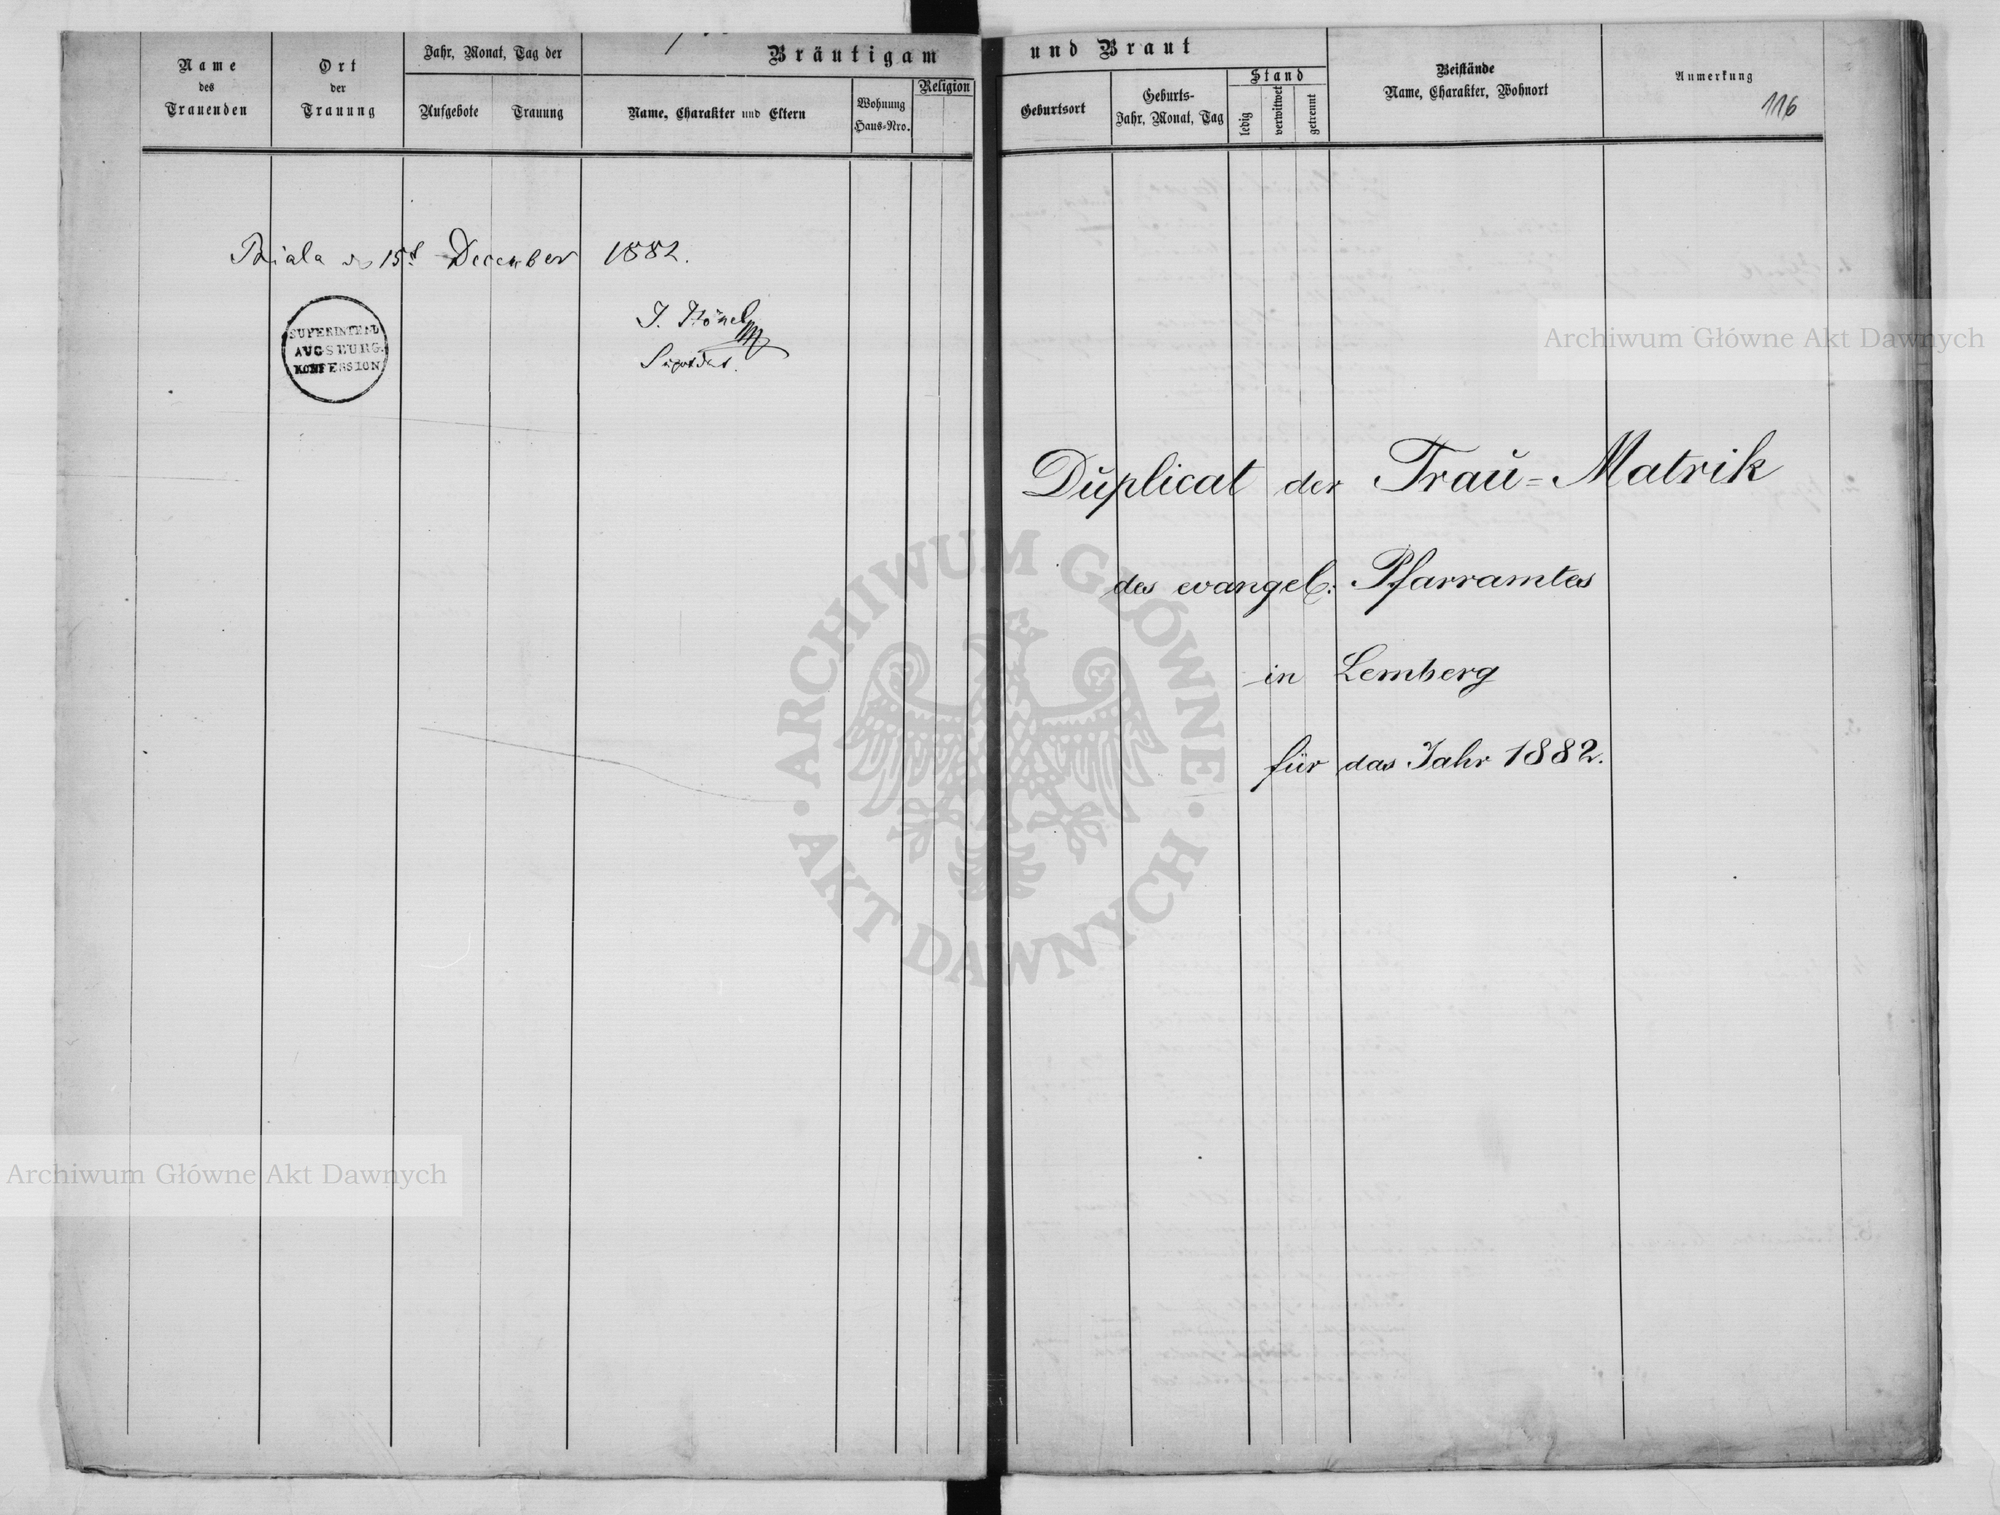 Name
des
Trauenden
Ort
der
Trauung
Jahr, Monat, Tag der
Aufgebote
Trauung
Bräutigam
Name, Charakter und Eltern
Wohnung
Haus-Nro.
Religion
Biala 15t December 1882.
SUPERINTEND
AUGSBURG.
KONFESSION
J. Hönel
und Braut
Geburtsort
Geburts-
Jahr, Monat, Tag
Stand
ledig
verwitwet
getrennt
Beistände
Name, Charakter, Wohnort
Anmerkung
116
Duplicat der Trau=Matrik
des evangel: Pfarramtes
in Lemberg
für das Jahr 1882.
Archiwum Główne Akt Dawnych
ARCHIWUM GŁÓWNE · AKT DAWNYCH ·
Archiwum Główne Akt Dawnych